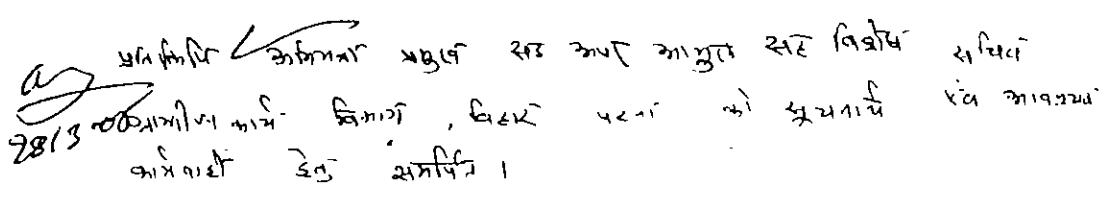 प्रतिलिपि अभियंता प्रमुख सह अपर आयुक्त सह विशेष सचिव
28/3 ग्रामीण कार्य विभाग, बिहार पटना को सूचनार्थ एवं आवश्यक
कार्यवाही हेतु समर्पित।